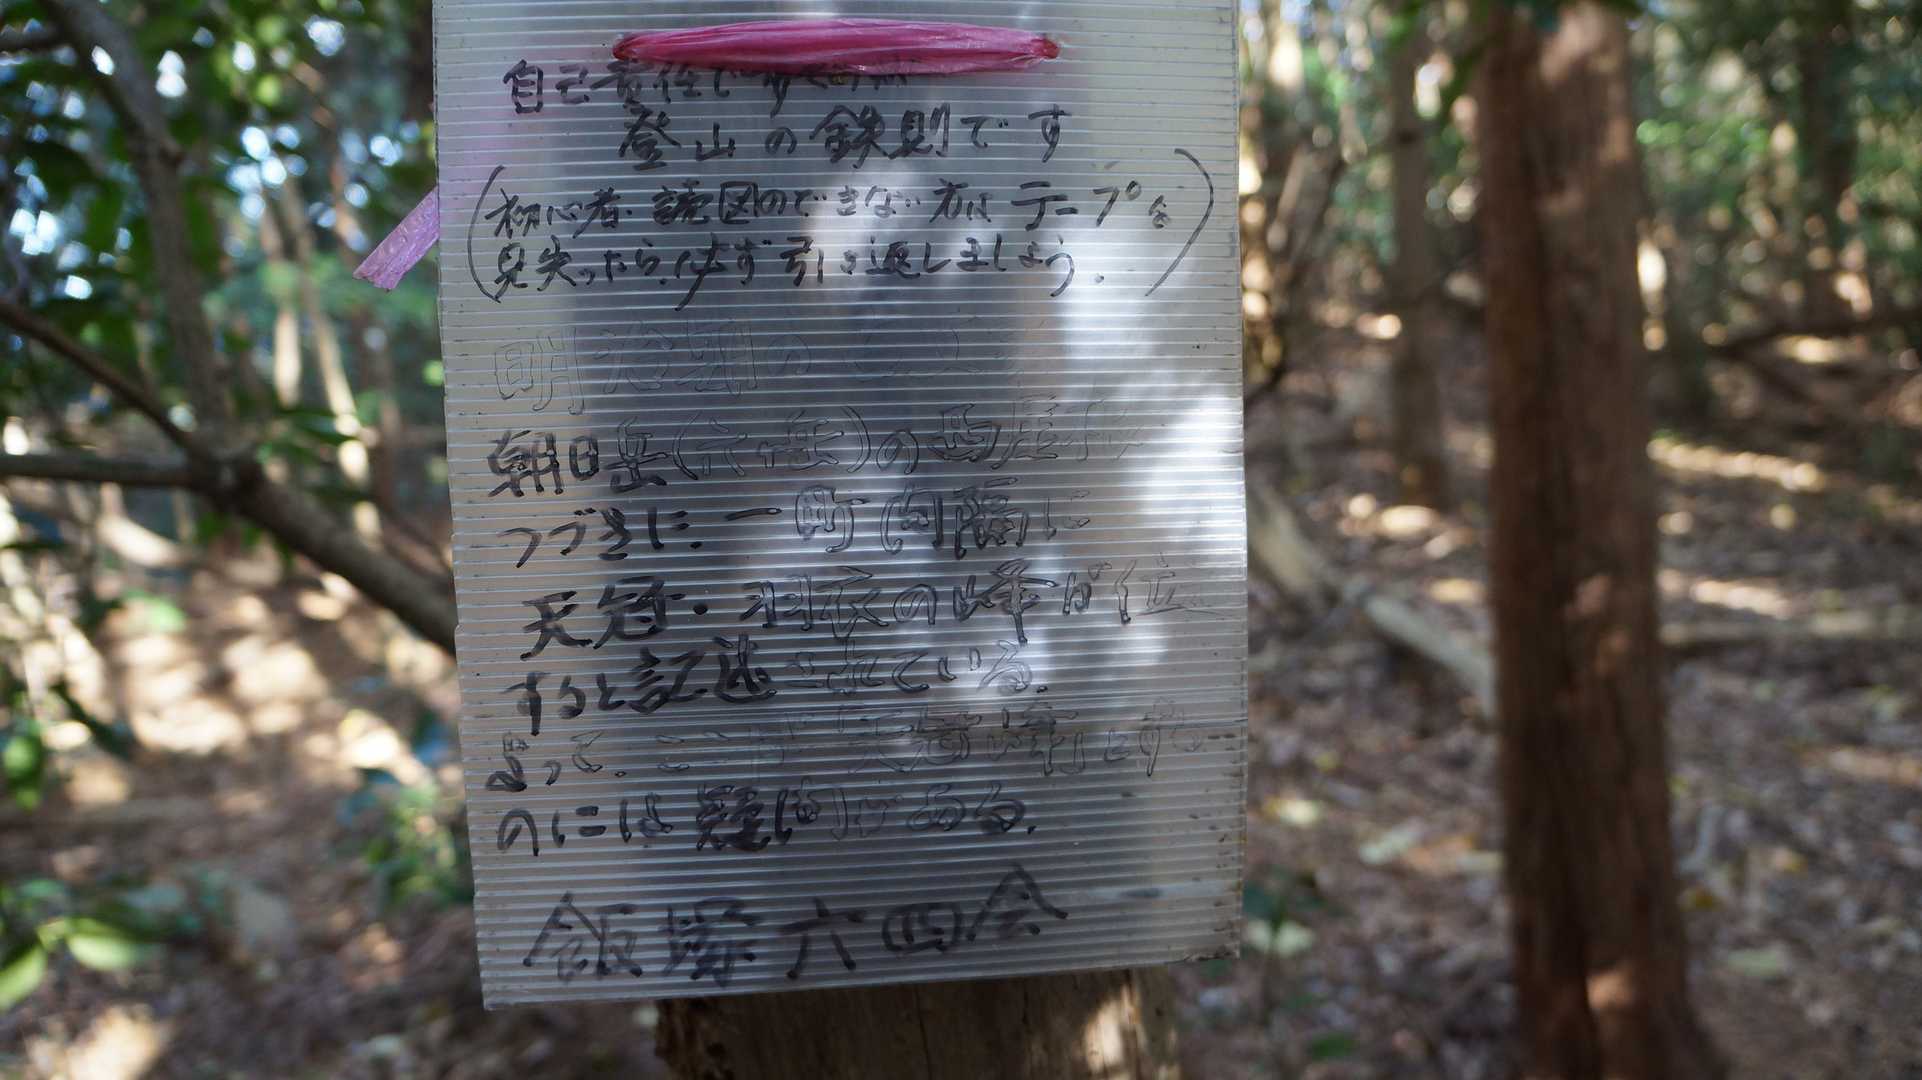 自己責任です
登山の鉄則です
(初心者.読図のできない方はテープを
見失ったら.必ず引き返しましょう.)
明治期の
朝日岳(六ヶ岳)の西尾根
つづきに一町間隔に
天冠・羽衣の峰が位
すると記述されている.
よって.ここが天冠峰とする
のには疑問がある.
飯塚六四会